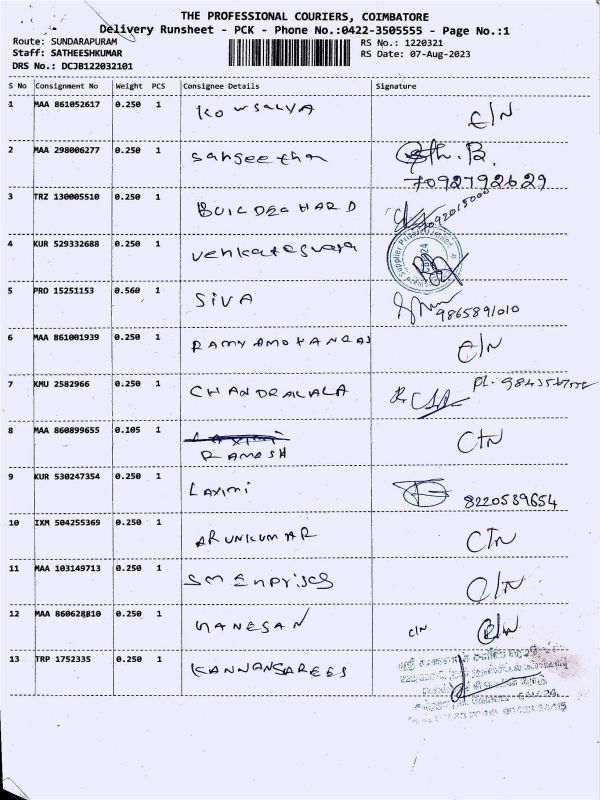 THE PROFESSIONAL COURIERS, COIMBATORE
Delivery Runsheet - PCK - Phone No.:0422-3505555 - Page No.:1
Route: SUNDARAPURAM
RS No.: 1220321
Staff: SATHEESHKUMAR
RS Date: 07-Aug-2023
DRS No.: DCJB122032101
S No Consignment No Weight PCS Consignee Details Signature
1 MAA 861052617 0.250 1 KOWSALYA C/N
2 MAA 298006277 0.250 1 sangeetha
7092792629
3 TRZ 130005510 0.250 1 BUILDEC HARD
4 KUR 529332688 0.250 1 venkateswara
5 PRO 15251153 0.560 1 SIVA
9865891010
6 MAA 861001939 0.250 1 RAMYAMOHANRAJ C/N
7 KMU 2582966 0.250 1 CHANDRAKALA
8 MAA 860899655 0.105 1 LAXIMI CTN
RAMESH
9 KUR 530247354 0.250 1 LAXIMI 8220539654
10 IXM 504255369 0.250 1 ARUNKUMAR CTN
11 MAA 103149713 0.250 1 SM Enprises C/N
12 MAA 860628810 0.250 1 GANESAN C/N C/N
13 TRP 1752335 0.250 1 KANNANSAREES